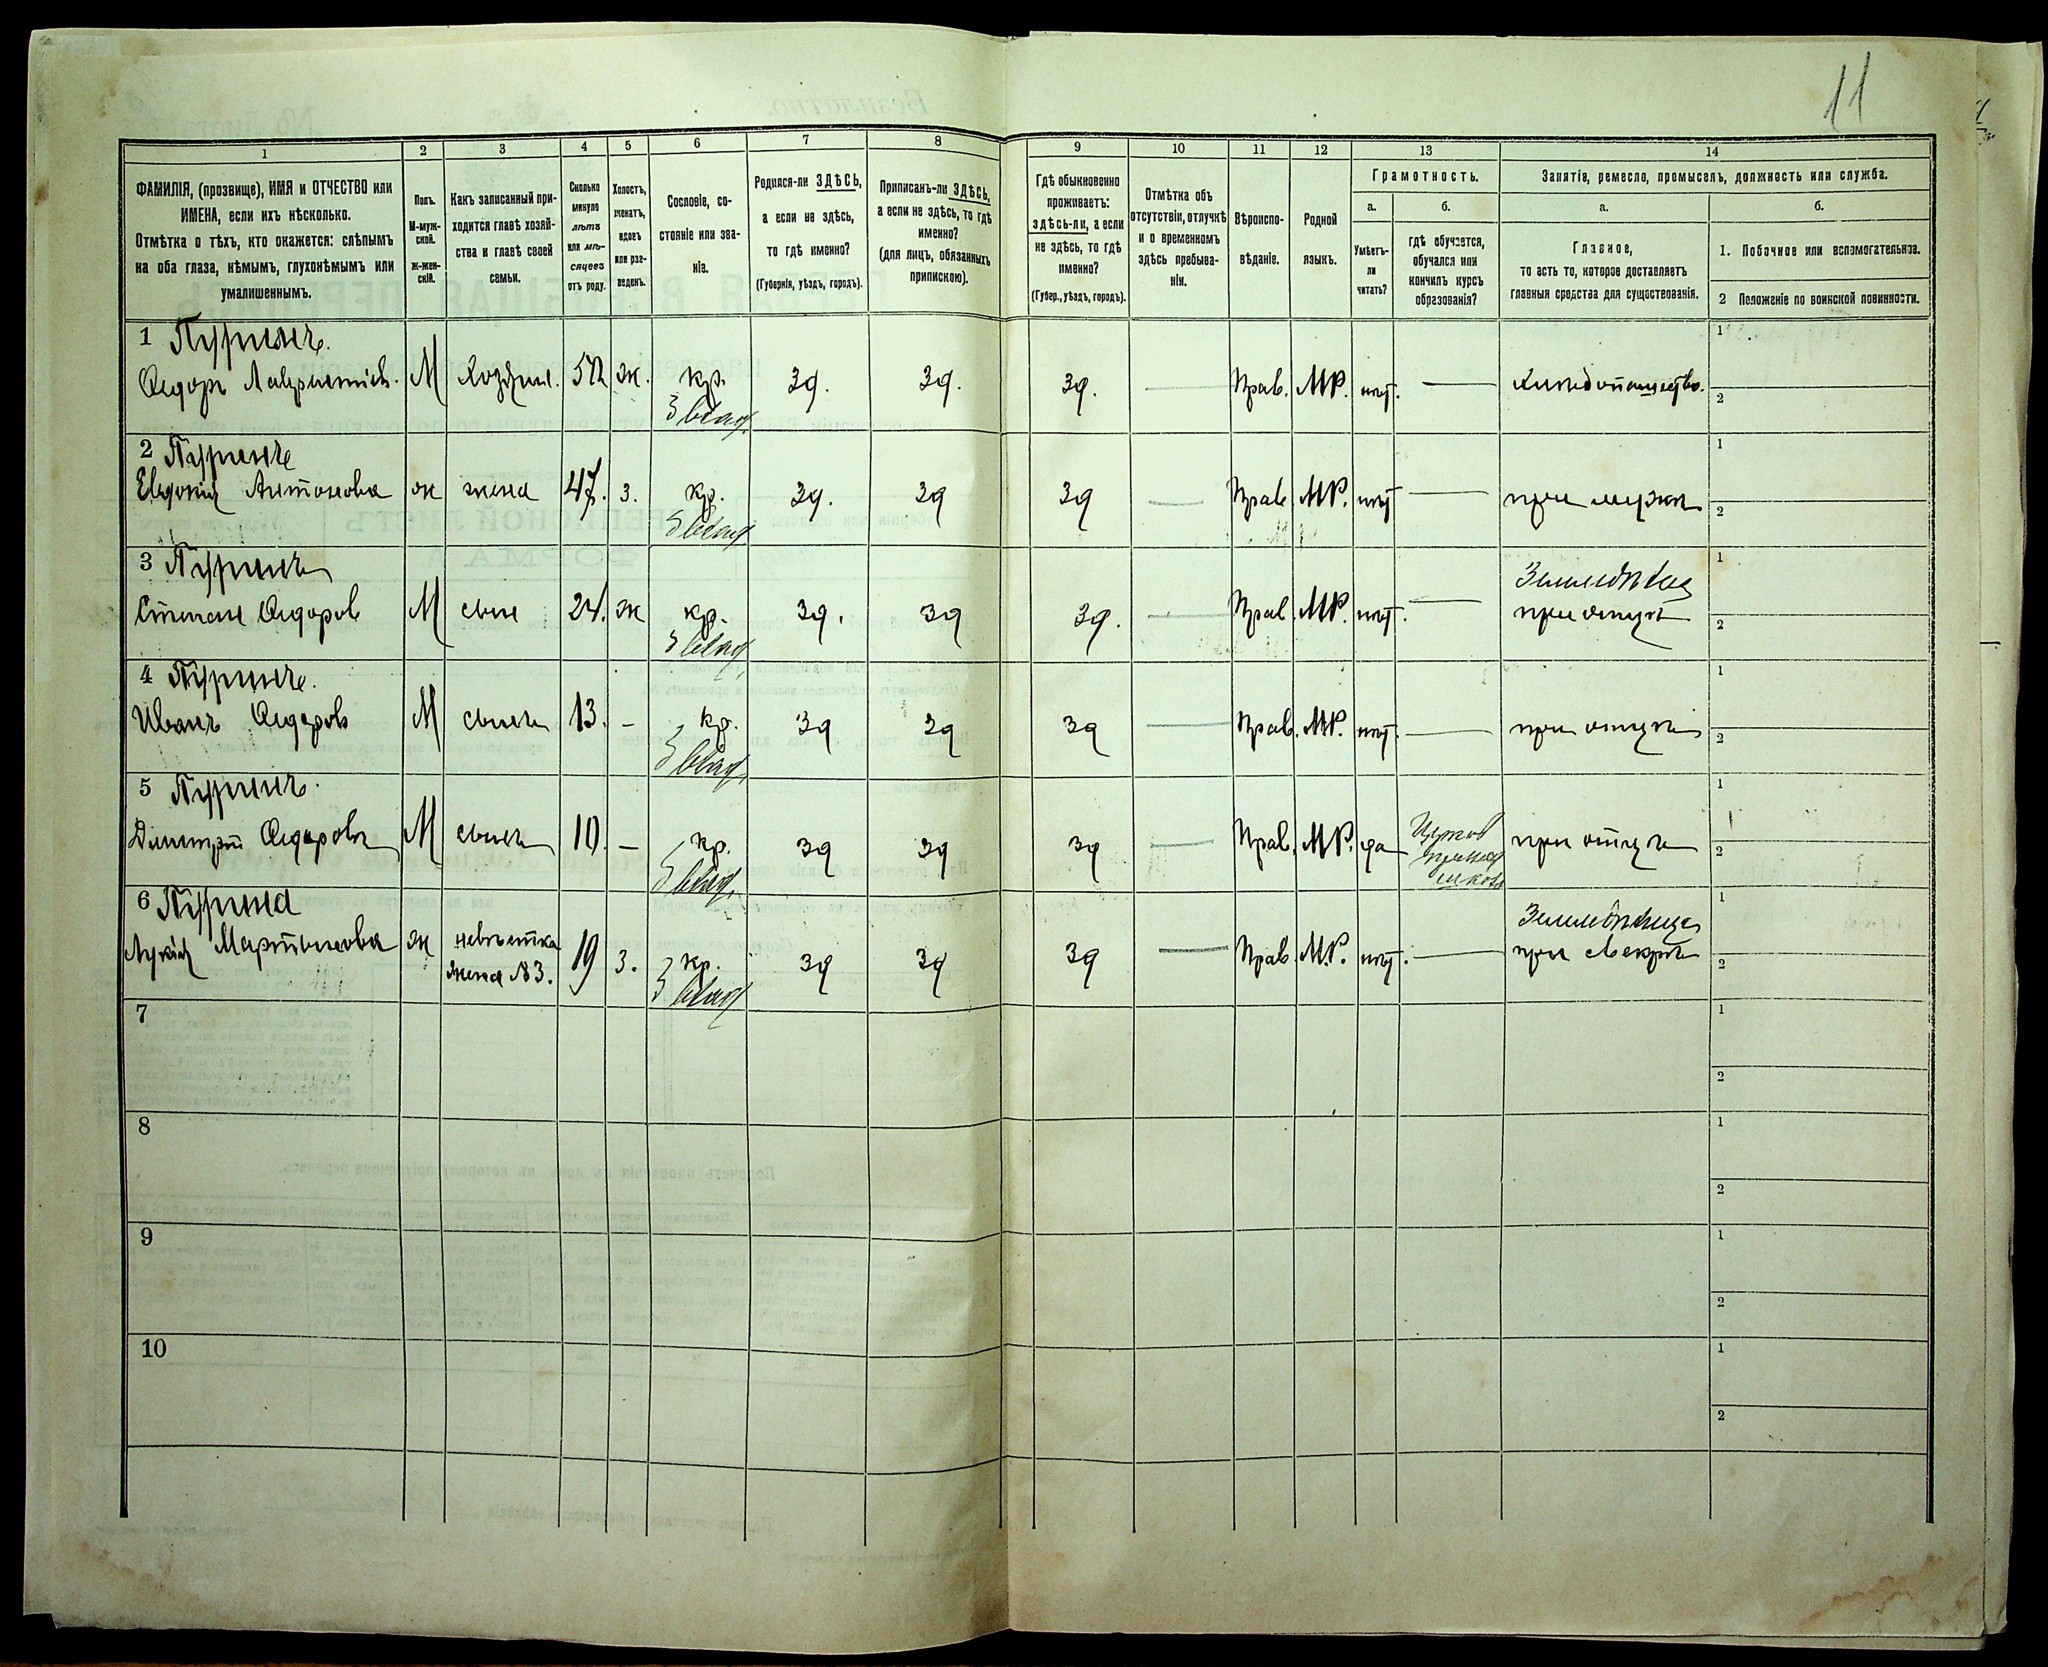 11
1 2 3 4 5 6 7 8 9 10 11 12 13 14
ФАМИЛІЯ, (прозвище), ИМЯ и ОТЧЕСТВО или
ИМЕНА, если ихъ нѣсколько.
Отмѣтка о тѣхъ, кто окажется: слѣпымъ
на оба глаза, нѣмымъ, глухонѣмымъ или
умалишеннымъ.
Полъ.
М-муж-
ской.
ж-жен-
скій.
Какъ записанный при-
ходится главѣ хозяй-
ства и главѣ своей
семьи.
Сколько
минуло
лѣтъ
или мѣ-
сяцевъ
отъ роду.
Холостъ,
женатъ,
вдовъ
или раз-
веденъ.
Сословіе, со-
стояніе или зва-
ніе.
Родился-ли ЗДѢСЬ,
а если не здѣсь,
то гдѣ именно?
(Губернія, уѣздъ, городъ).
Приписанъ-ли ЗДѢСЬ,
а если не здѣсь, то гдѣ
именно?
(для лицъ, обязанныхъ
припискою).
Гдѣ обыкновенно
проживаетъ:
ЗДѢСЬ-ЛИ, а если
не здѣсь, то гдѣ
именно?
(Губер., уѣздъ, городъ).
Отмѣтка объ
отсутствіи, отлучкѣ
и о временномъ
здѣсь пребыва-
ніи.
Вѣроиспо-
вѣданіе.
Родной
языкъ.
Грамотность.
а.
Умѣетъ-
ли
читать?
б.
гдѣ обучается,
обучался или
кончилъ курсъ
образованія?
Занятіе, ремесло, промыселъ, должность или служба.
а.
Главное,
то есть то, которое доставляетъ
главныя средства для существованія.
б.
1. Побочное или вспомогательное.
2 Положеніе по воинской повинности.
1
Ѳедоръ М 52 ж. кр. зд. зд. зд. — Прав. МР. нѣт. — Хлѣбопашество.
з влад.
2
Евдокія Антонова ж жена 47. з. кр. зд. зд зд — Прав МР. нѣт — при мужѣ
з влад
3 Земледѣлец
Степан Ѳедоров М сын 24. ж кр. зд. зд зд. — Прав МР. нѣт. — при отцѣ
з влад
4
Иванъ Ѳедоровъ М сынъ 13. — кр. зд зд зд — Прав. МР. нѣт. — при отцѣ
з влад.
5
Димитрій Ѳедоровъ М сынъ 10. — кр. зд зд зд — Прав. МР. да Церков приход школѣ при отцѣ
з влад.
6 Земледѣлица
Мартынова ж невѣстка жена №3. 19 з. кр. зд зд зд — Прав. МР. нѣт. — при свекрѣ
з влад
7
8
9
10
1
2
1
2
1
2
1
2
1
2
1
2
1
2
1
2
1
2
1
2